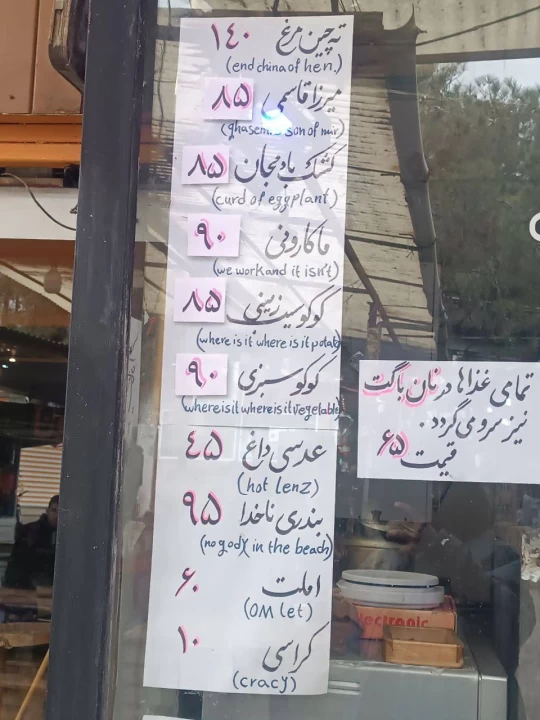 ته چین مرغ ۱۴۰
(end china of hen.)
میرزا قاسمی ۸۵
(ghasemi son of mir)
کشک بادمجان ۸۵
(curd of eggplant)
ماکارونی ۹۰
(we work and it isn't)
کوکو سیب زمینی ۸۵
(where is it where is it potato)
کوکو سبزی ۹۰
(where is it where is it vegetable)
عدسی داغ ۴۵
(hot lenz)
بندری ناخدا ۹۵
(no god in the beach)
املت ۶۰
(OM let)
کراسی ۱۰
(cracy)
تمامی غذاها در نان باگت
نیز سرو می گردد.
قیمت ۶۵
Electronic